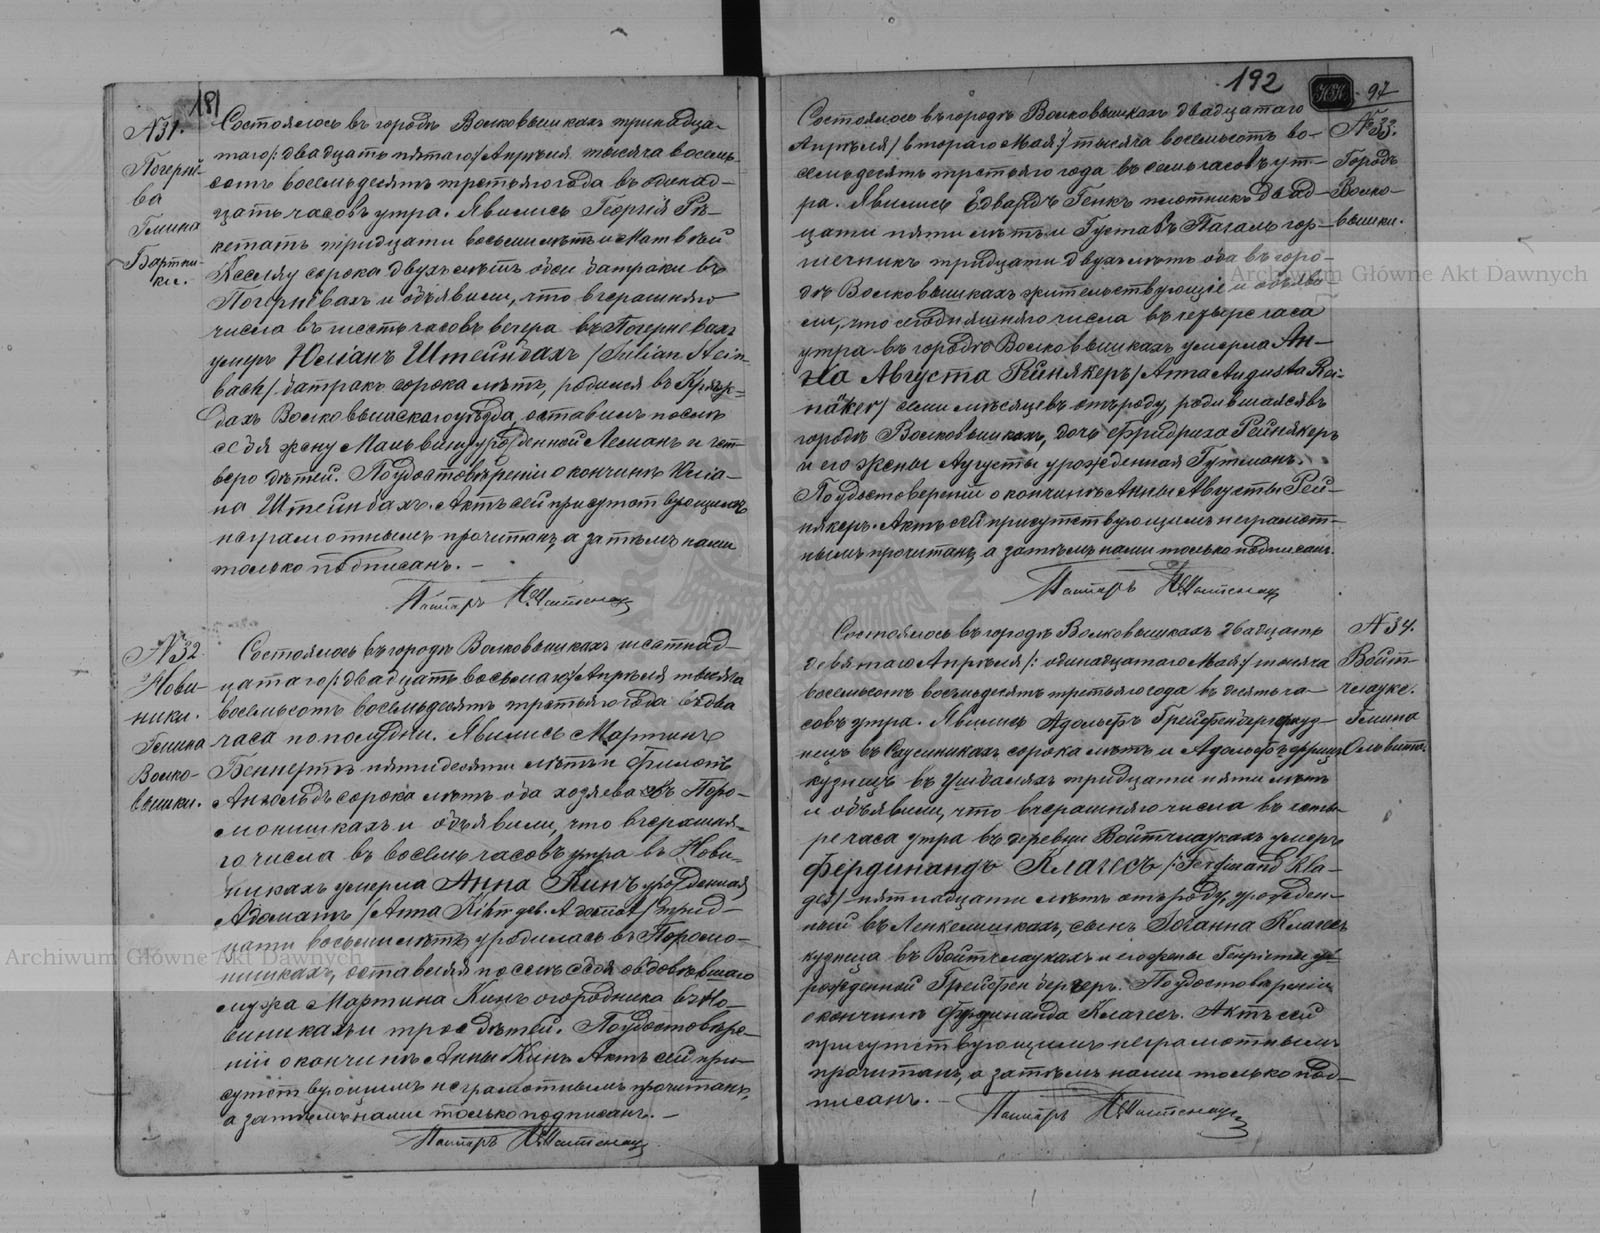 181
№31.
Погерне-
ва
Гмина
Бартни-
ки.
Состоялось въ городѣ Волковышкахъ тринадца-
таго /: двадцать пятаго :/ Апрѣля тысяча восемь-
сотъ восемьдесятъ третьяго года въ одинад-
цать часовъ утра. Явились Георгій Рѣ-
кетатъ тридцати восьми лѣтъ и Матвѣй
сорока двухъ лѣтъ обои батраки въ
Погерневахъ и объявили, что вчерашняго
числа въ шесть часовъ вечера въ Погерневахъ
умеръ Юліанъ Штейнбахъ /Julian Stein-
bach/ батракъ сорока лѣтъ, родился въ
Волковышскаго уѣзда, оставилъ послѣ
себя жену Мальвину урожденной Леманъ и чет-
веро дѣтей. По удостовѣреніи о кончинѣ Юліа-
на Штейнбахъ. Актъ сей присутствующимъ
неграмотнымъ прочитанъ, а затѣмъ нами
только подписанъ. —
Пасторъ
№32
Нови-
ники.
Гмина
Волко-
вышки.
Состоялось въ городѣ Волковышкахъ шестнад-
цатаго /: двадцать восьмаго :/ Апрѣля тысяча
восемьсотъ восемьдесятъ третьяго года въ два
часа по полудни. Явились Мартинъ
Беннертъ пятидесяти лѣтъ и Филиппъ
сорока лѣтъ оба хозяева въ Поро-
монишкахъ и объявили, что вчерашня-
го числа въ восемь часовъ утра въ Нови-
никахъ умерла Анна Кинъ урожденная
Адоматъ /Anna Kihn geb. Adomat/ трид-
цати восьми лѣтъ, родилась въ Поромо-
нишкахъ, оставляя послѣ себя овдовѣвшаго
мужа Мартина Кинъ огородника въ Но-
виникахъ и трое дѣтей. По удостовѣре-
ніи о кончинѣ Анны Кинъ Актъ сей при-
сутствующимъ неграмотнымъ прочитанъ,
а затѣмъ нами только подписанъ. —
Пасторъ
192
97
№33.
Городъ
Волко-
вышки.
Состоялось въ городѣ Волковышкахъ двадцатаго
Апрѣля /: втораго Мая :/ тысяча восемьсотъ во-
семьдесятъ третьяго года въ семь часовъ ут-
ра. Явились Едвардъ Генкъ плотникъ двад-
цати пяти лѣтъ и Густавъ Пагалъ гор-
шечникъ тридцати двухъ лѣтъ оба въ горо-
дѣ Волковышкахъ жительствующіе и объяви-
ли, что сегодняшняго числа въ четыре часа
утра въ городѣ Волковышкахъ умерла Ан-
на Августа Рейнякеръ /Anna Augusta Rei-
näker/ семи мѣсяцевъ отъ роду, родившаяся въ
городѣ Волковышкахъ, дочь Фридриха Рейнякеръ
и его жены Августы урожденная Гутманъ.
По удостовереніи о кончинѣ Анны Августы Рей-
някеръ. Актъ сей присутствующимъ неграмот-
нымъ прочитанъ, а затѣмъ нами только подписанъ.
Пасторъ
№34.
Войт-
члаукс.
Гмина
Ольвита.
Состоялось въ городѣ Волковышкахъ двадцать
девятаго Апрѣля /: одинадцатаго Мая :/ тысяча
восемьсотъ восемьдесятъ третьяго года въ десять ча-
совъ утра. Явились Адольфъ Грейфенбергеръ куз-
нецъ въ сорока лѣтъ и Адольфъ Фрицъ
кузнецъ въ тридцати пяти лѣтъ
и объявили, что вчерашняго числа въ четы-
ре часа утра въ деревни Войтчлаукахъ умеръ
Фердинандъ Клагесъ /: Ferdinand Kla-
ges/ пятнадцати лѣтъ отъ роду, урожден-
ный въ Ленкелишкахъ, сынъ Іоганна Клагесъ
кузнеца въ Войтчлаукахъ и его жены Генріеты у-
рожденной Грейфенбергеръ. По удостовѣреніи
о кончинѣ Фердинанда Клагесъ. Актъ сей
присутствующимъ неграмотнымъ
прочитанъ, а затѣмъ нами только под-
писанъ. —
Пасторъ
Archiwum Główne Akt Dawnych
Archiwum Główne Akt Dawnych